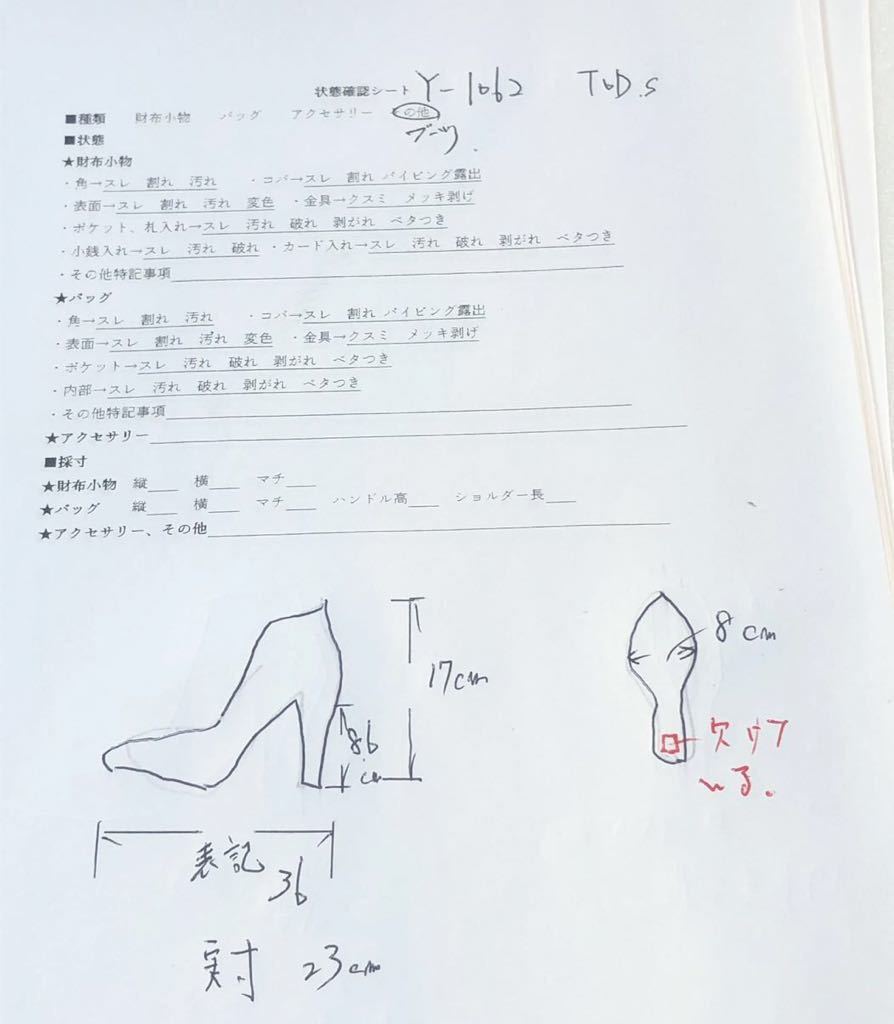 状態確認シート Y-1062 TOD.S
■種類 財布小物 バッグ アクセサリー その他
ブーツ.
■状態
★財布小物
・角→スレ 割れ 汚れ ・コバ→スレ 割れ パイピング露出
・表面→スレ 割れ 汚れ 変色 ・金具→クスミ メッキ剥げ
・ポケット、札入れ→スレ 汚れ 破れ 剥がれ ベタつき
・小銭入れ→スレ 汚れ 破れ ・カード入れ→スレ 汚れ 破れ 剥がれ ベタつき
・その他特記事項
★バッグ
・角→スレ 割れ 汚れ ・コバ→スレ 割れ パイピング露出
・表面→スレ 割れ 汚れ 変色 ・金具→クスミ メッキ剥げ
・ポケット→スレ 汚れ 破れ 剥がれ ベタつき
・内部→スレ 汚れ 破れ 剥がれ ベタつき
・その他特記事項
★アクセサリー
■採寸
★財布小物 縦 横 マチ
★バッグ 縦 横 マチ ハンドル高 ショルダー長
★アクセサリー、その他
8cm
17cm
8.6
cm
欠けて
いる。
表記
36
実寸 23cm